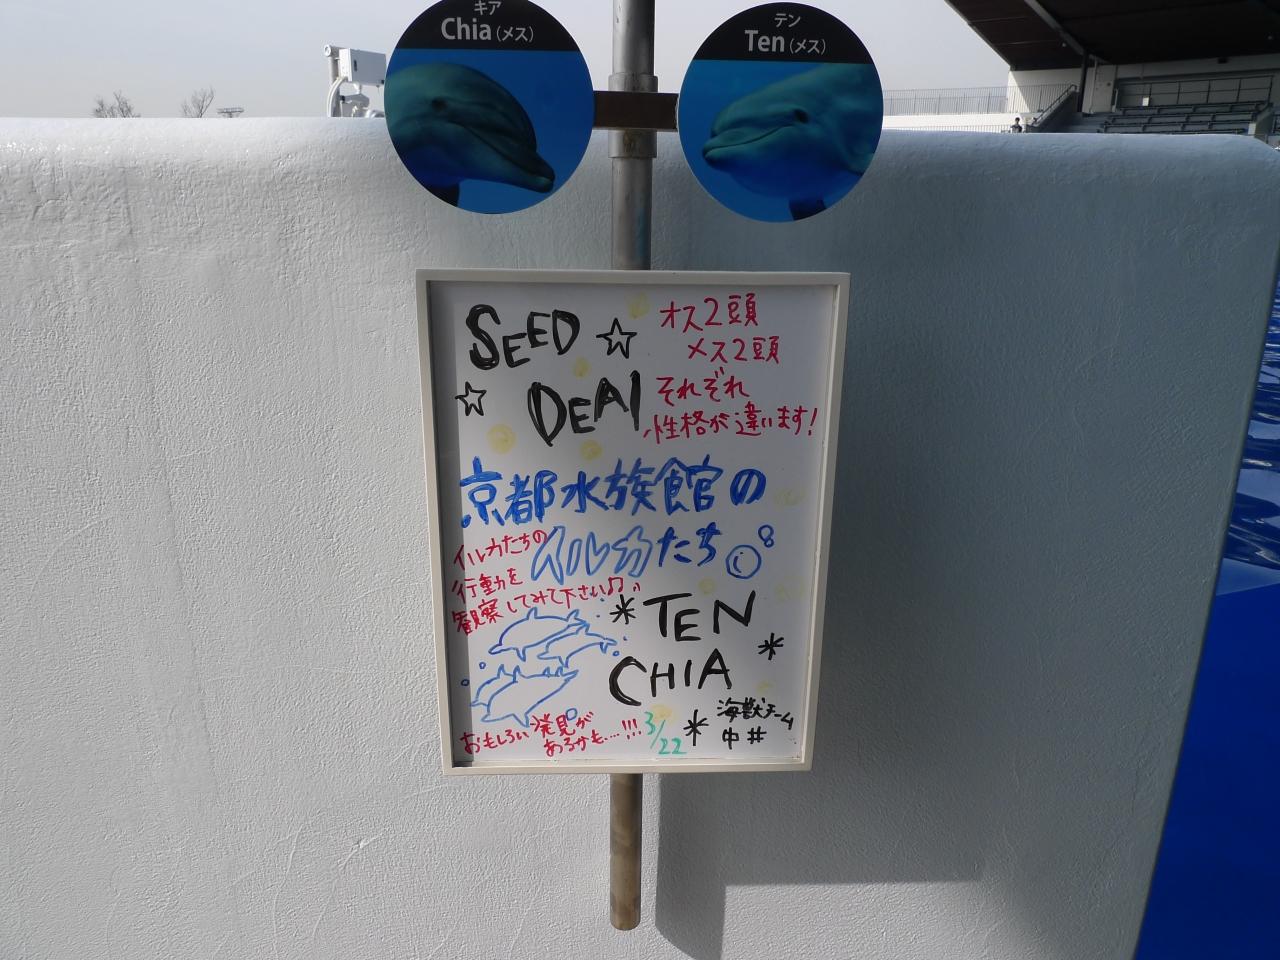 キア
Chia (メス)
テン
Ten (メス)
SEED
DEAI
オス2頭
メス2頭
それぞれ
性格が違います!
京都水族館の
イルカたち
イルカたちの
行動を
観察してみて下さい♫
TEN
CHIA
おもしろい発見が
あるかも…!!!
3/22
海獣チーム
中井